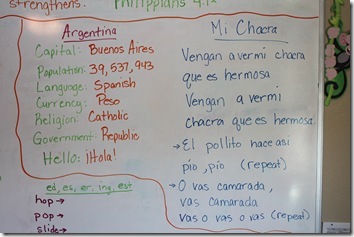 strengthens. Philippians 4:13
Argentina
Capital: Buenos Aires
Population: 39,537,943
Language: Spanish
Currency: Peso
Religion: Catholic
Government: Republic
Hello: ¡Hola!
Mi Chacra
Vengan a ver mi chacra
que es hermosa
Vengan a ver mi
chacra que es hermosa.
→ El pollito hace asi
pío, pío (repeat)
→ O vas camarada,
vas camarada
vas o vas o vas (repeat)
ed, es, er, ing, est
hop →
pop →
slide →